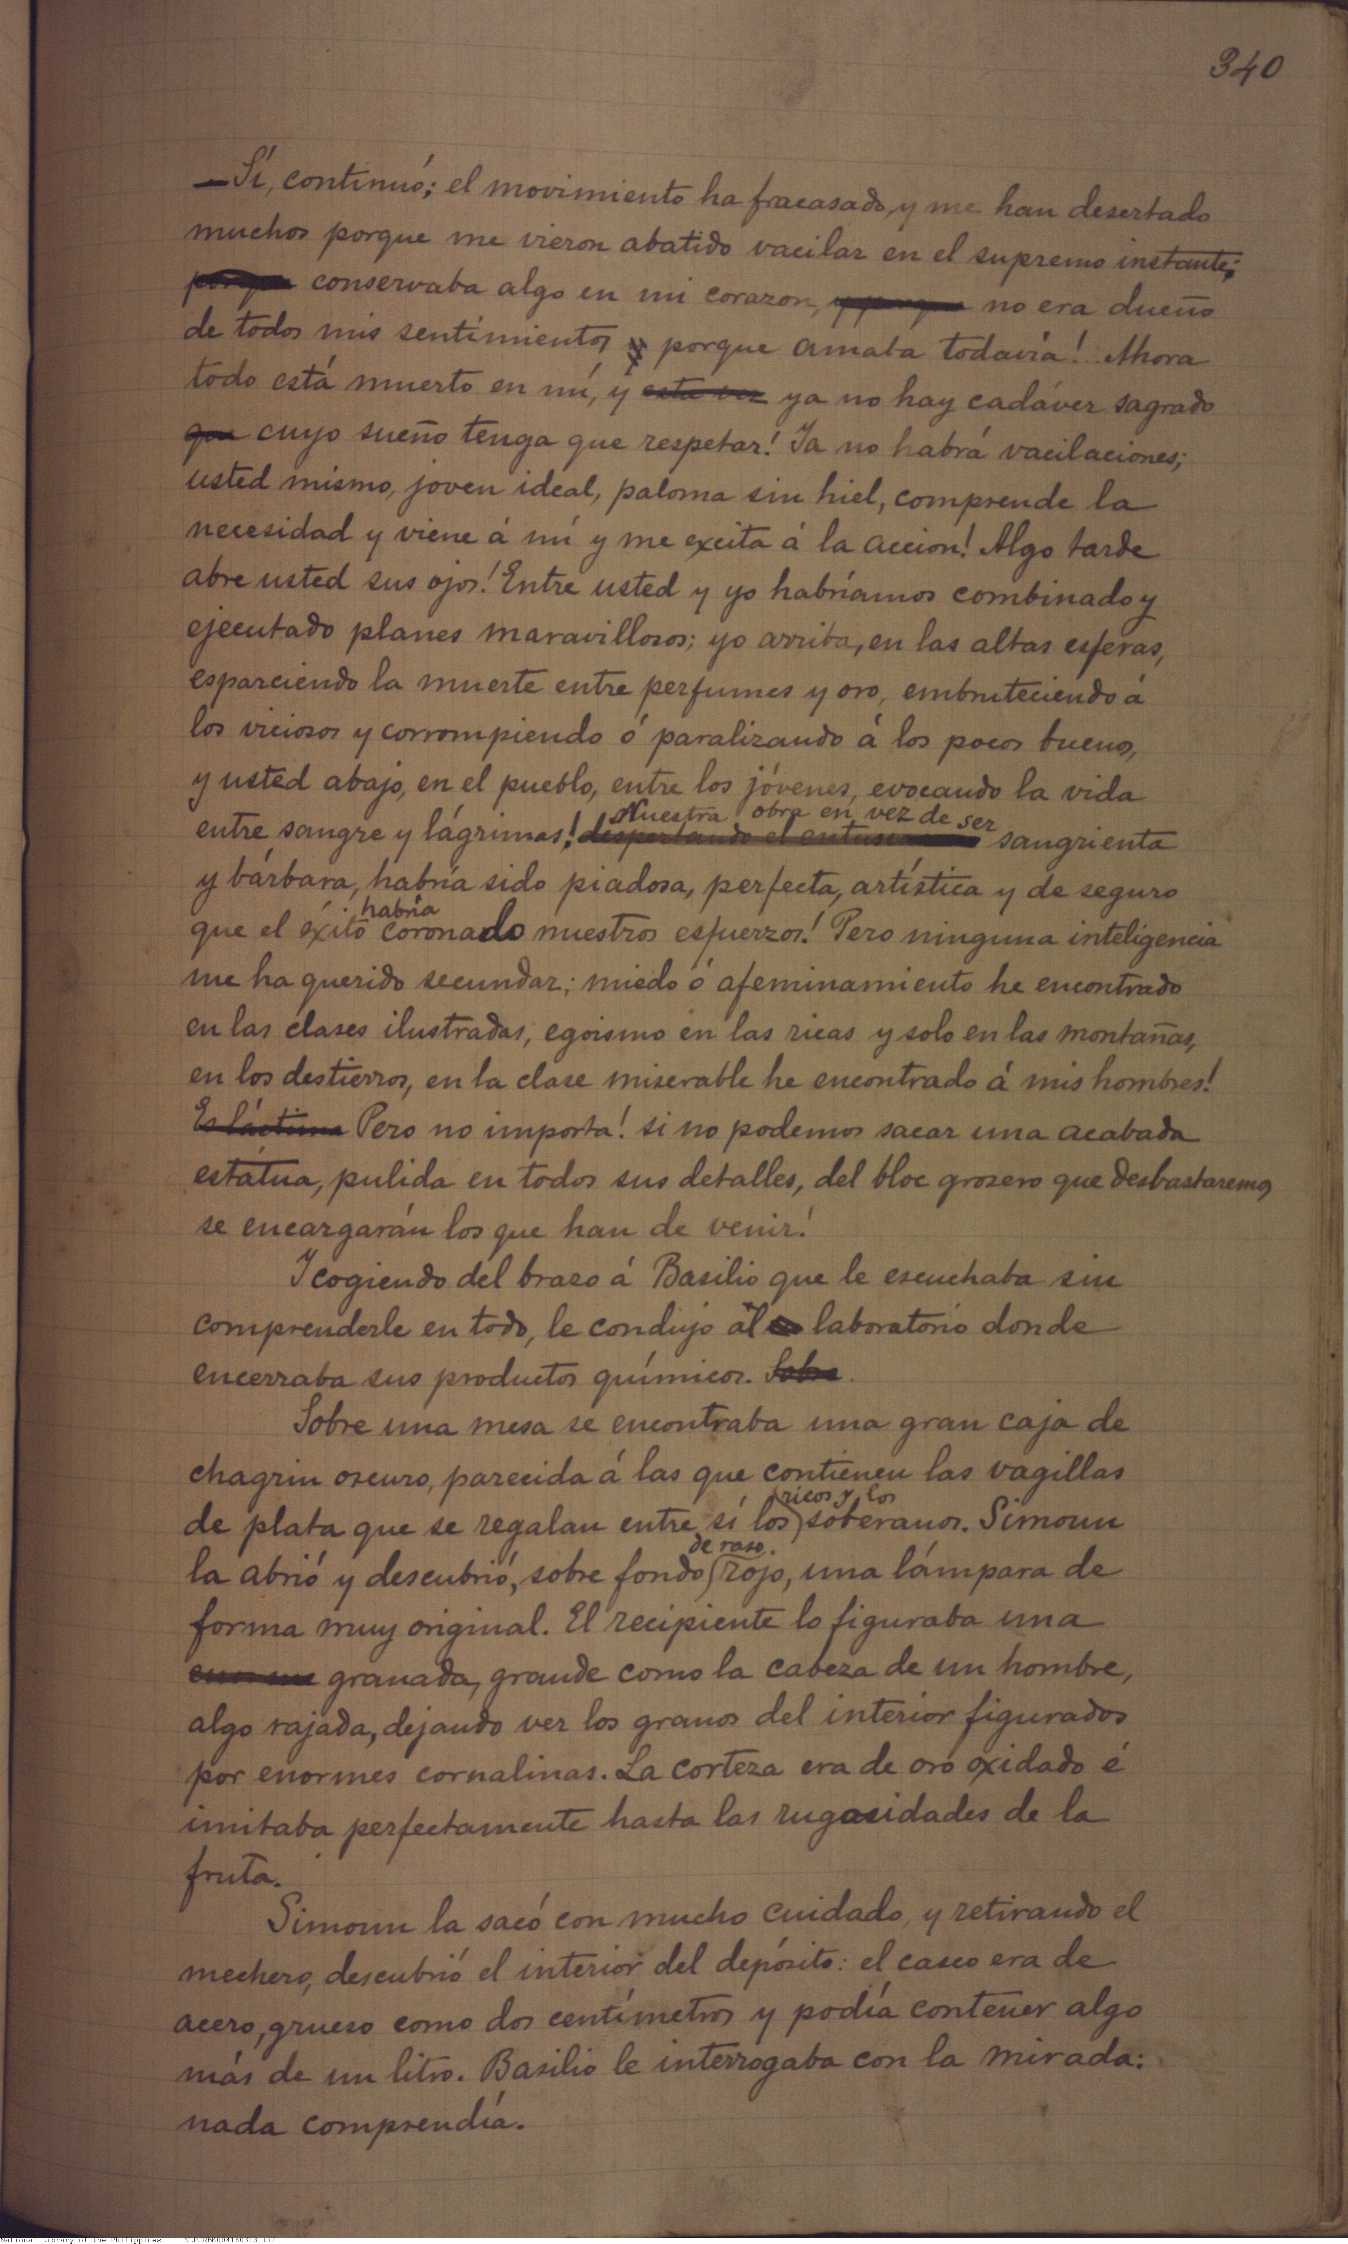 340
— Sí, continuó; el movimiento ha fracasado, y me han desertado
muchos porque me vieron abatido vacilar en el supremo instante;
porque conservaba algo en mi corazon, y porque no era dueño
de todos mis sentimientos y porque amaba todavía! Ahora
todo está muerto en mí, y esta vez ya no hay cadáver sagrado
que cuyo sueño tenga que respetar! Ya no habrá vacilaciones;
usted mismo, joven ideal, paloma sin hiel, comprende la
necesidad y viene á mí y me excita á la accion! Algo tarde
abre usted sus ojos! Entre usted y yo habríamos combinado y
ejecutado planes maravillosos; yo arriba, en las altas esferas,
esparciendo la muerte entre perfumes y oro, embruteciendo á
los viciosos y corrompiendo ó paralizando á los pocos buenos,
y usted abajo, en el pueblo, entre los jóvenes, evocando la vida
Nuestra obra en vez de ser
entre sangre y lágrimas! despertando el sangrienta
y bárbara, habría sido piadosa, perfecta, artística y de seguro
habría
que el éxito coronado nuestros esfuerzos! Pero ninguna inteligencia
me ha querido secundar; miedo ó afeminamiento he encontrado
en las clases ilustradas, egoismo en las ricas y solo en las montañas,
en los destierros, en la clase miserable he encontrado á mis hombres!
Es lástima Pero no importa! si no podemos sacar una acabada
estátua, pulida en todos sus detalles, del bloc grosero que desbastaremos
se encargarán los que han de venir!
Y cogiendo del brazo á Basilio que le escuchaba sin
comprenderle en todo, le condujo al laboratorio donde
encerraba sus productos químicos. Sobre.
Sobre una mesa se encontraba una gran caja de
chagrin oscuro, parecida á las que contienen las vagillas
ricos y los
de plata que se regalan entre sí los soberanos. Simoun
de raso.
la abrió y descubrió, sobre fondo rojo, una lámpara de
forma muy original. El recipiente lo figuraba una
enorme granada, grande como la cabeza de un hombre,
algo rajada, dejando ver los granos del interior figurados
por enormes cornalinas. La corteza era de oro oxidado é
imitaba perfectamente hasta las rugosidades de la
fruta.
Simoun la sacó con mucho cuidado, y retirando el
mechero, descubrió el interior del depósito: el casco era de
acero, grueso como dos centímetros y podía contener algo
más de un litro. Basilio le interrogaba con la mirada:
nada comprendía.
National Library of the Philippines